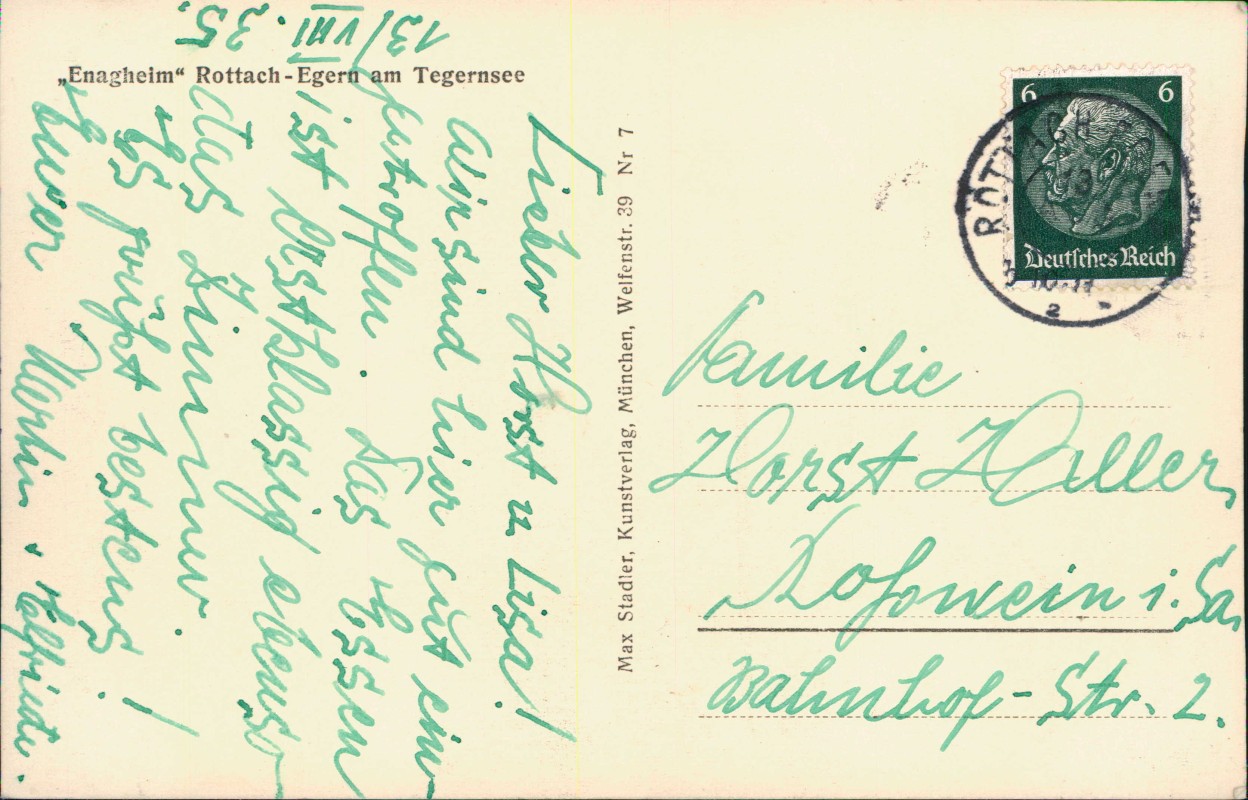 „Enagheim“ Rottach-Egern am Tegernsee
13/VIII. 35.
Lieber Horst u. Lisa!
Wir sind hier gut ein
getroffen. Das Essen
ist erstklassig ebenso
das Zimmer.
Es grüßt bestens!
Euer
Max Stadler, Kunstverlag, München, Welfenstr. 39 Nr 7
6 6
Deutsches Reich
ROTTACH
2
Familie
Horst Haller,
Roßwein i. Sa,
Bahnhof-Str. 2.